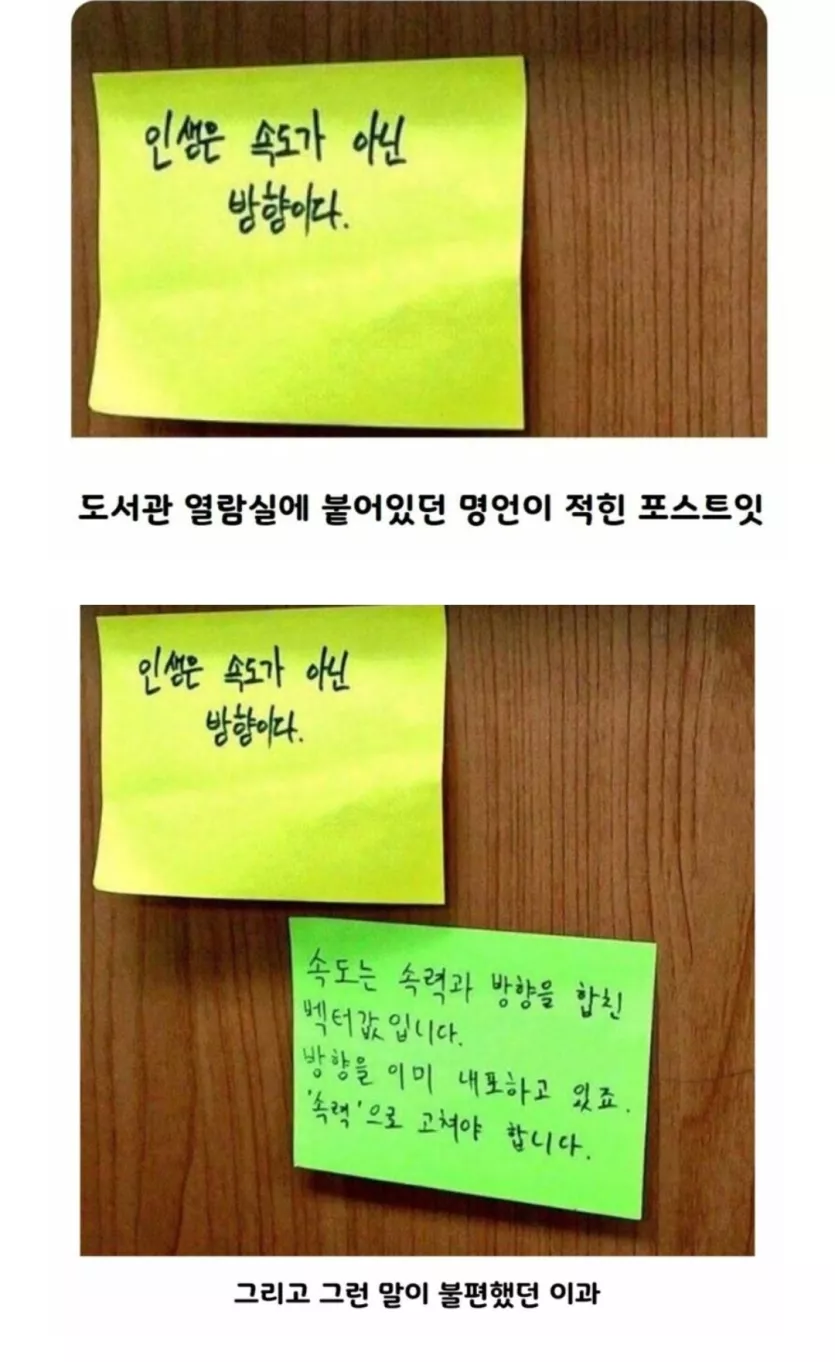 인생은 속도가 아닌
방향이다.
도서관 열람실에 붙어있던 명언이 적힌 포스트잇
인생은 속도가 아닌
방향이다.
속도는 속력과 방향을 합친
벡터값입니다.
방향을 이미 내포하고 있죠.
'속력'으로 고쳐야 합니다.
그리고 그런 말이 불편했던 이과